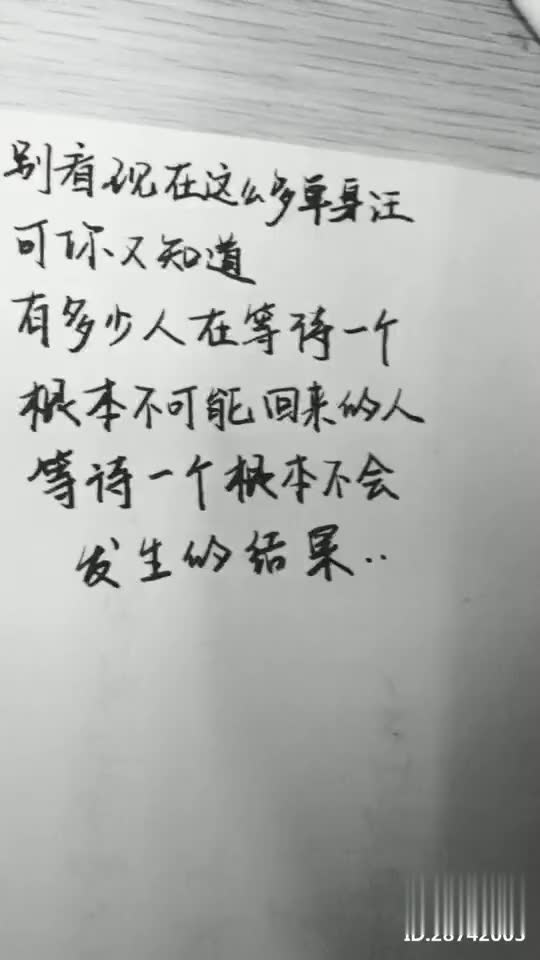 别看现在这么多单身汪
可你又知道
有多少人在等待一个
根本不可能回来的人
等待一个根本不会
发生的结果..
ID:28742005